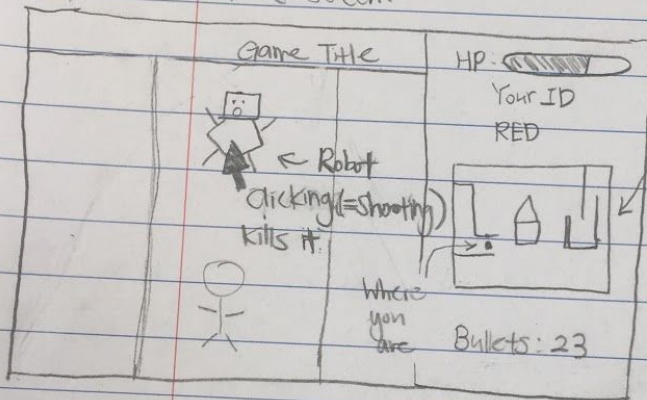 Game Title
HP:
Your ID
RED
← Robot
Clicking(=shooting)
kills it
Where
you
are
Bullets: 23